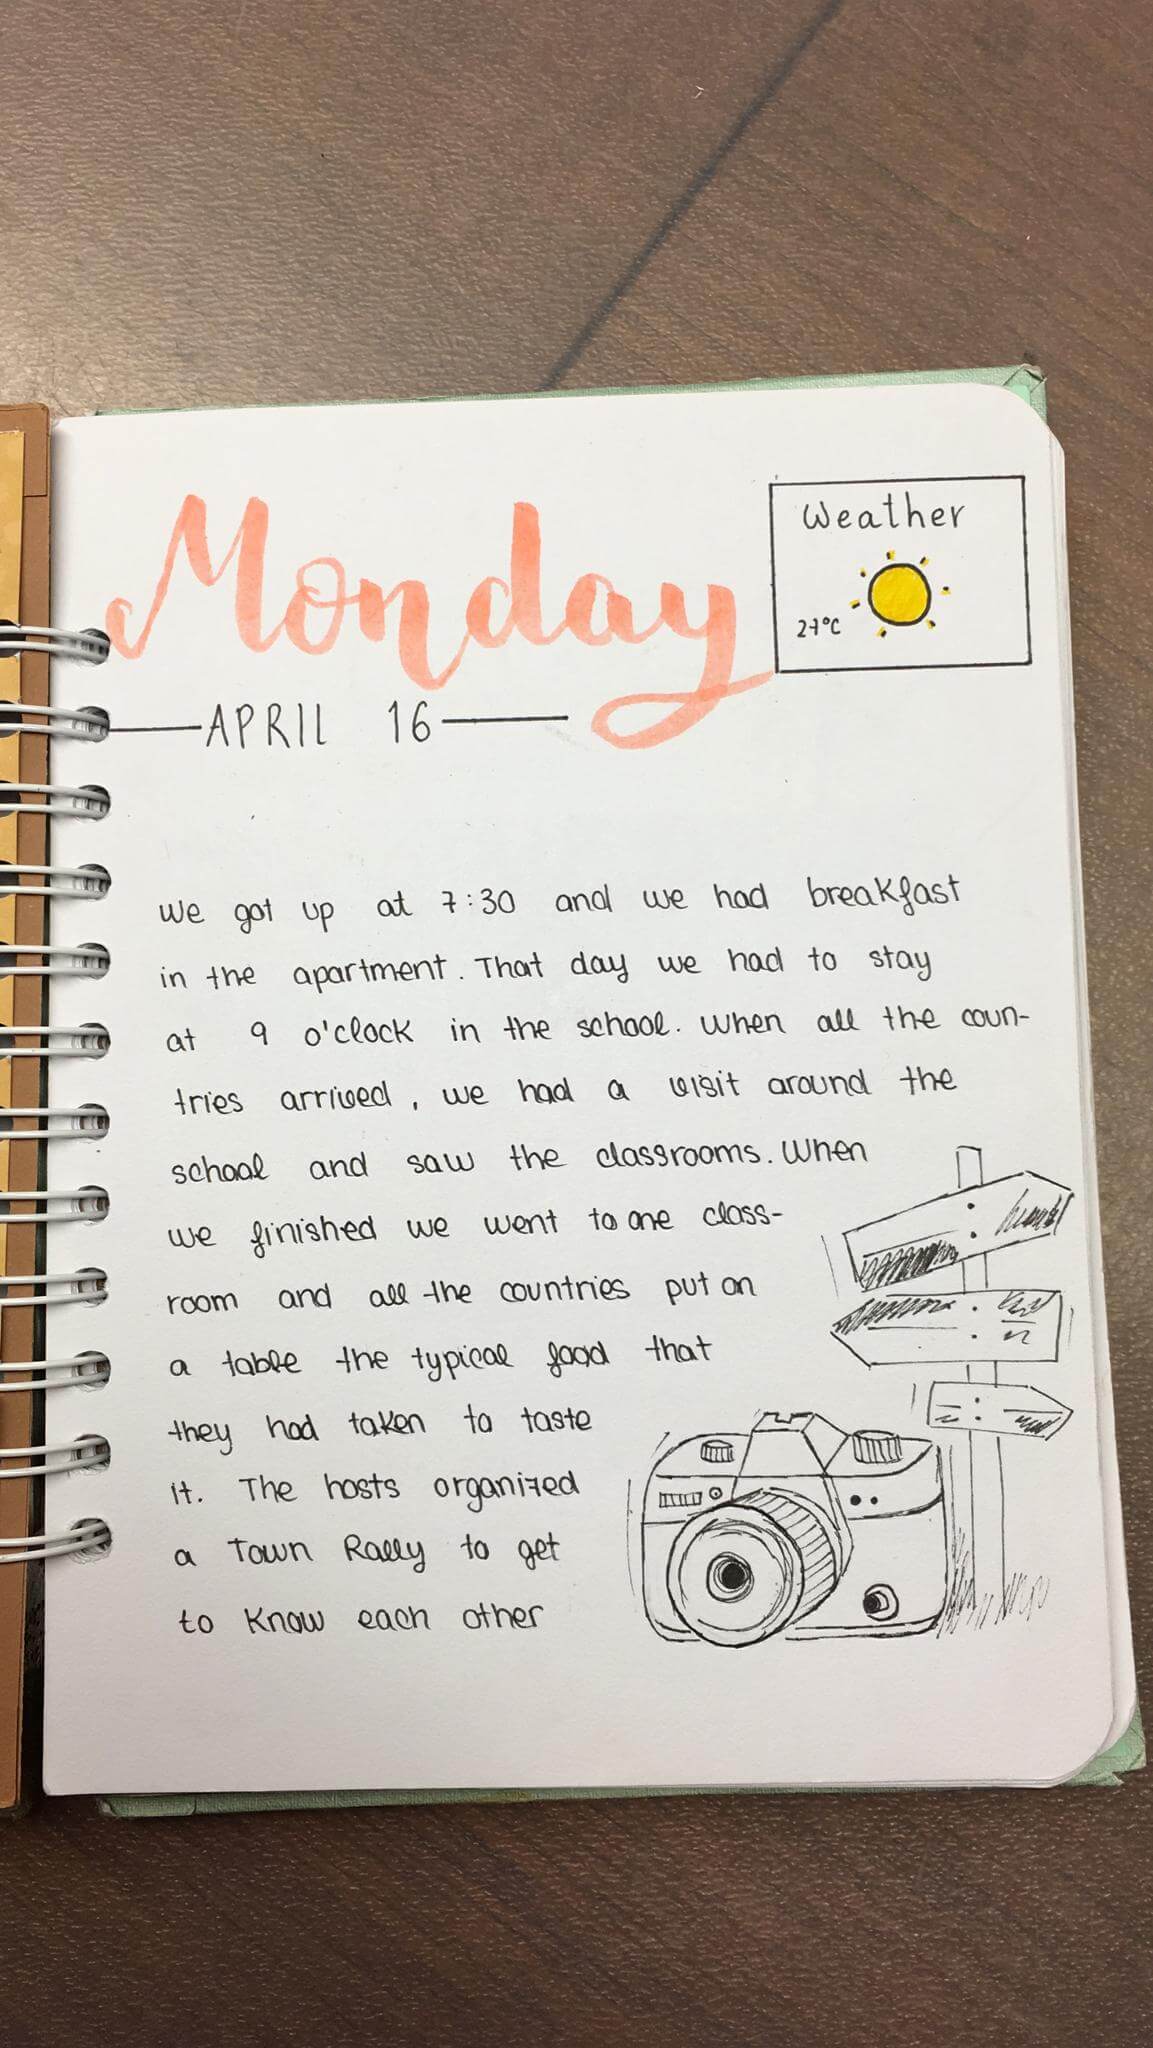 Monday
Weather
27°C
APRIL 16
We got up at 7:30 and we had breakfast
in the apartment. That day we had to stay
at 9 o'clock in the school. When all the coun-
tries arrived, we had a visit around the
school and saw the classrooms. When
we finished we went to one class-
room and all the countries put on
a table the typical food that
they had taken to taste
it. The hosts organized
a Town Rally to get
to know each other